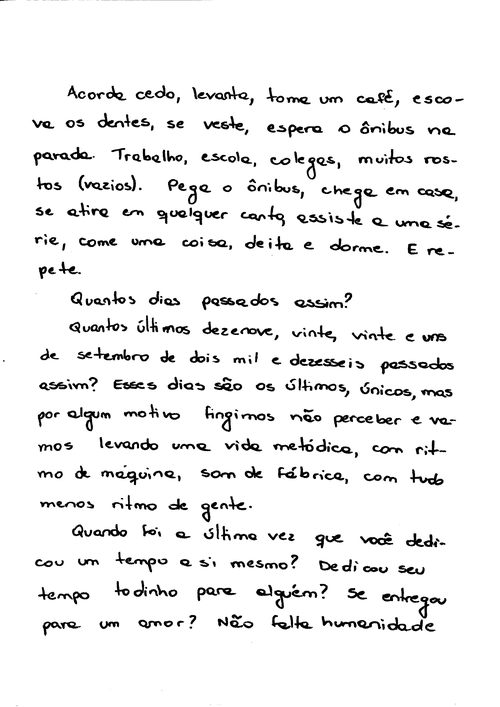 Acorda cedo, levanta, toma um café, esco-
va os dentes, se veste, espera o ônibus na
parada. Trabalho, escola, colegas, muitos ros-
tos (vazios). Pega o ônibus, chega em casa,
se atira em qualquer canto, assiste a uma sé-
rie, come uma coisa, deita e dorme. E re-
pete.
Quantos dias passados assim?
Quantos últimos dezenove, vinte, vinte e uns
de setembro de dois mil e dezesseis passados
assim? Esses dias são os últimos, únicos, mas
por algum motivo fingimos não perceber e va-
mos levando uma vida metódica, com rit-
mo de máquina, som de fábrica, com tudo
menos ritmo de gente.
Quando foi a última vez que você dedi-
cou um tempo a si mesmo? Dedicou seu
tempo todinho para alguém? Se entregou
para um amor? Não falta humanidade